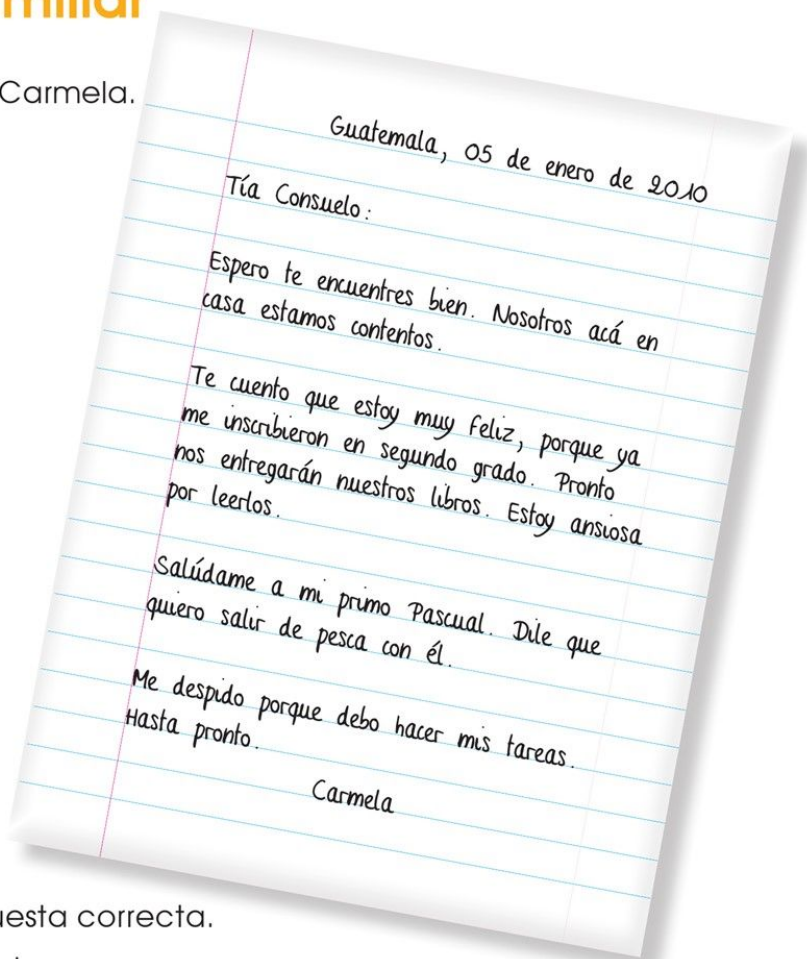 Carmela.
Guatemala, 05 de enero de 2010
Tía Consuelo:
Espero te encuentres bien. Nosotros acá en
casa estamos contentos.
Te cuento que estoy muy feliz, porque ya
me inscribieron en segundo grado. Pronto
nos entregarán nuestros libros. Estoy ansiosa
por leerlos.
Salúdame a mi primo Pascual. Dile que
quiero salir de pesca con él.
Me despido porque debo hacer mis tareas.
Hasta pronto.
Carmela
correcta.